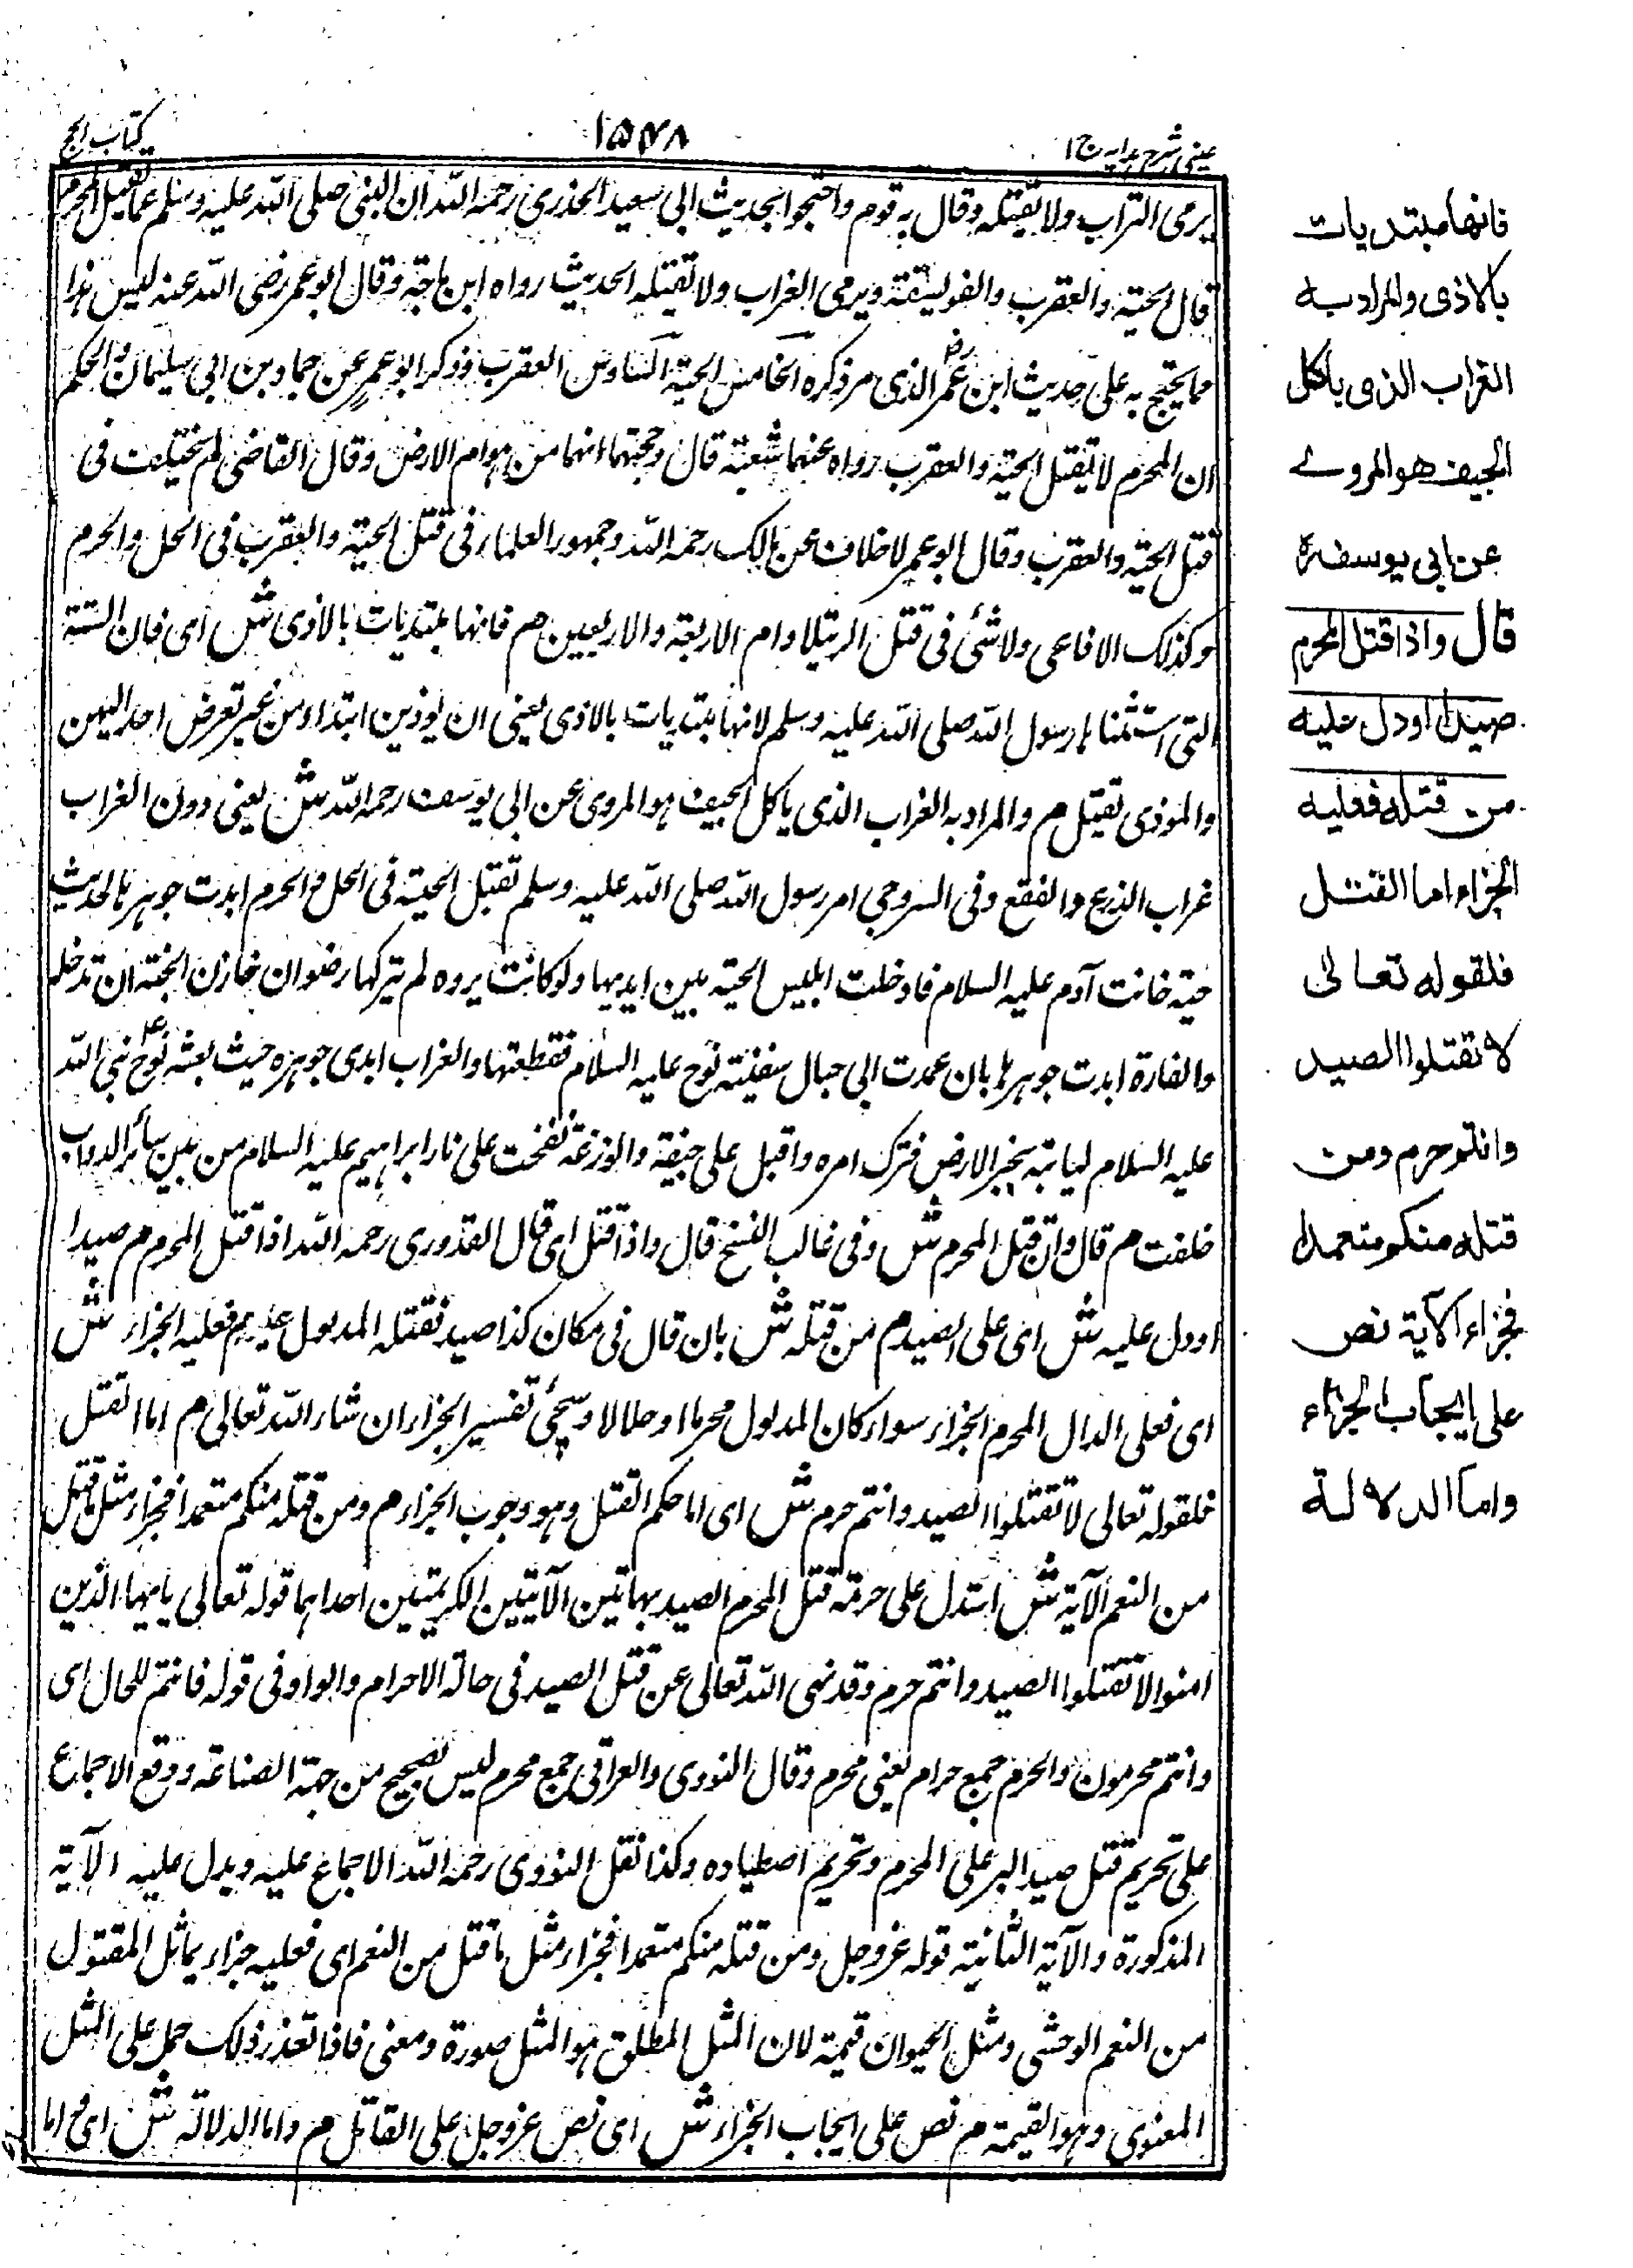 عینی شرح ہدایہ ج ١
١٥٧٨
كتاب الحج
يرمى التراب ولا يقتله وقال به قوم واحتجوا بحديث ابى سعيد الخدرى رحمه الله ان النبى صلى الله عليه وسلم عما يقتل المحرم
قال الحية والعقرب والفويسقة ويرمى الغراب ولا يقتله الحديث رواه ابن ماجة وقال ابو عمر رضى الله عنه ليس هذا
مما يحتج به على حديث ابن عمر رض الذى مر ذكره الخامس الحية السادس العقرب وذكر ابو عمر عن حماد بن ابى سليمان والحكم
ان المحرم لا يقتل الحية والعقرب رواه عنهما شعبة قال وحجتهما انهما من هوام الارض وقال القاضى لم يختلف فى
قتل الحية والعقرب وقال ابو عمر لا خلاف عن مالك رحمه الله وجمهور العلماء فى قتل الحية والعقرب فى الحل والحرم
وكذلك الافاعى ولا شئ فى قتل الرتيلا وام الاربعة والاربعين م فانها مبتديات بالاذى ش اى فان الستة
التى استثناها رسول الله صلى الله عليه وسلم لانها مبتديات بالاذى يعنى ان يوذين ابتداء من غير تعرض احد اليهن
والموذى يقتل م والمراد به الغراب الذى ياكل الجيف هو المروى عن ابى يوسف رحمه الله ش يعنى دون الغراب
غراب الزرع والفقع وفى السروجى امر رسول الله صلى الله عليه وسلم بقتل الحية فى الحل والحرم ابدت جوهرها لحديث
حية خانت آدم عليه السلام فادخلت ابليس الحية بين ايديها ولو كانت يروه لم يتركها رضوان خازن الجنة ان تدخلها
والفارة ابدت جوهرها بان عمدت الى حبال سفينة نوح عليه السلام فقطعتها والغراب ابدى جوهره حيث بعثه نوح ع نبى الله
عليه السلام لياتيه بخبر الارض فترك امره واقبل على جيفة والوزغة نفخت على نار ابراهيم عليه السلام من بين سائر الدواب
خلفت م قال وان قتل المحرم ش وفى غالب النسخ قال واذا قتل اى قال القدورى رحمه الله اذا قتل المحرم م صيدا
او دل عليه ش اى على الصيد م من قتله ش بان قال فى مكان كذا صيد فقتله المدلول عليه م فعليه الجزاء ش
اى فعلى الدال المحرم الجزاء سواء كان المدلول محرما او حلالا وسيجئ تفسير الجزاء ان شاء الله تعالى م اما القتل
فلقوله تعالى لا تقتلوا الصيد وانتم حرم ش اى اما حكم القتل وهو وجوب الجزاء م ومن قتله منكم متعمدا فجزاء مثل ما قتل
من النعم الآية ش استدل على حرمة قتل المحرم الصيد بهاتين الآيتين الكريمتين احداهما قوله تعالى يا ايها الذين
امنوا لا تقتلوا الصيد وانتم حرم وقد نهى الله تعالى عن قتل الصيد فى حالة الاحرام والواو فى قوله فانتم للحال اى
وانتم محرمون والحرم جمع حرام يعنى محرم وقال النووى والعراقى جمع محرم ليس بصحيح من جهة الصناعة ووقع الاجماع
على تحريم قتل صيد البر على المحرم وتحريم اصطياده وكذا نقل النووى رحمه الله الاجماع عليه ويدل عليه الآية
المذكورة والآية الثانية قوله عز وجل ومن قتله منكم متعمدا فجزاء مثل ما قتل من النعم اى فعليه جزاء يماثل المقتول
من النعم الوحشى ومثل الحيوان قيمة لان المثل المطلق هو المثل صورة ومعنى فاذا تعذر ذلك حمل على المثل
المعنوى وهو القيمة م نص على ايجاب الجزاء ش اى نص عز وجل على القاتل م واما الدلالة ش اى اما
فانها مبتديات
بالاذى والمراد به
الغراب الذى ياكل
الجيف هو المروے
عن ابى يوسف رح
قال واذا قتل المحرم
صيدا او دل عليه
من قتله فعليه
الجزاء اما القتل
فلقوله تعالى
لا تقتلوا الصيد
وانتم حرم ومن
قتله منكم متعمدا
فجزاء الآية نص
على ايجاب الجزاء
واما الدلالة